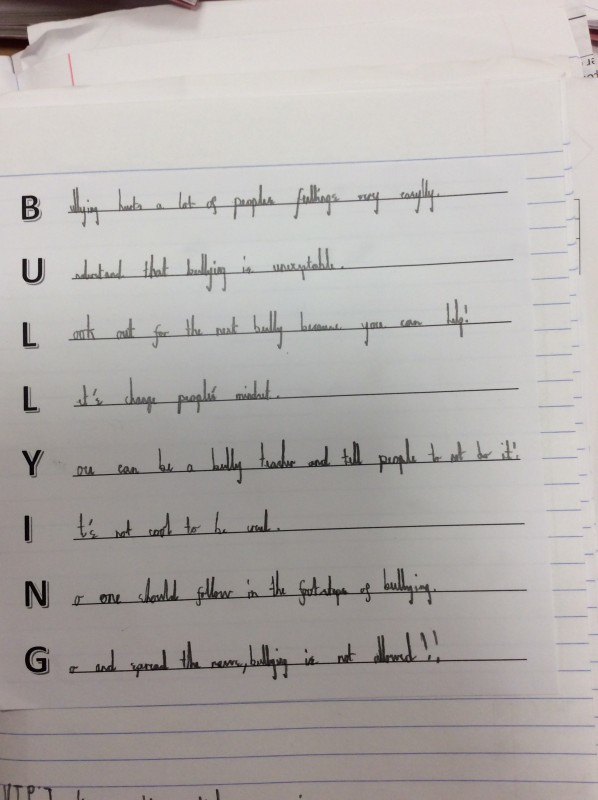 Bullying hurts a lot of peoples fellings very easylly.
Understand that bullying is uneceptable.
Look out for the next bully because you can help!
Let's change people's mindset.
You can be a bully teacher and tell people to not do it!
It's not cool to be cruel.
No one should follow in the footsteps of bullying.
Go and spread the news, bullying is not allowed!!